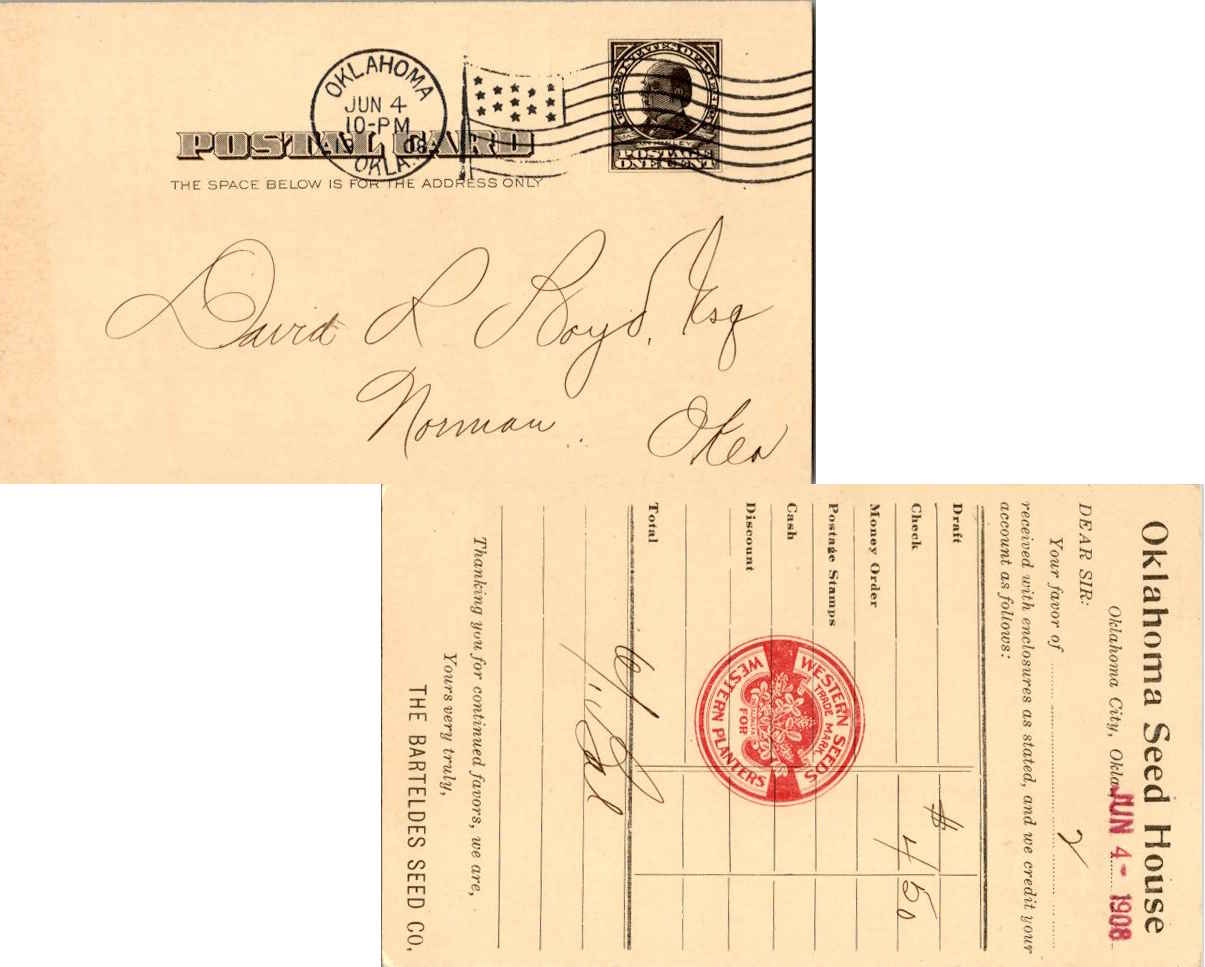 OKLAHOMA
JUN 4
10-PM
19 08
OKLA.
POSTAL CARD
THE SPACE BELOW IS FOR THE ADDRESS ONLY
POSTAGE
ONE CENT
David R Boyd, Esq
Norman Okla
Oklahoma Seed House
Oklahoma City, Okla. JUN 4- 1908
DEAR SIR:
Your favor of 2
received with enclosures as stated, and we credit your
account as follows:
Draft $
Check 4 50
Money Order
Postage Stamps
Cash
Discount
Total
WESTERN SEEDS
TRADE MARK
FOR
WESTERN PLANTERS
Thanking you for continued favors, we are,
Yours very truly,
THE BARTELDES SEED CO.